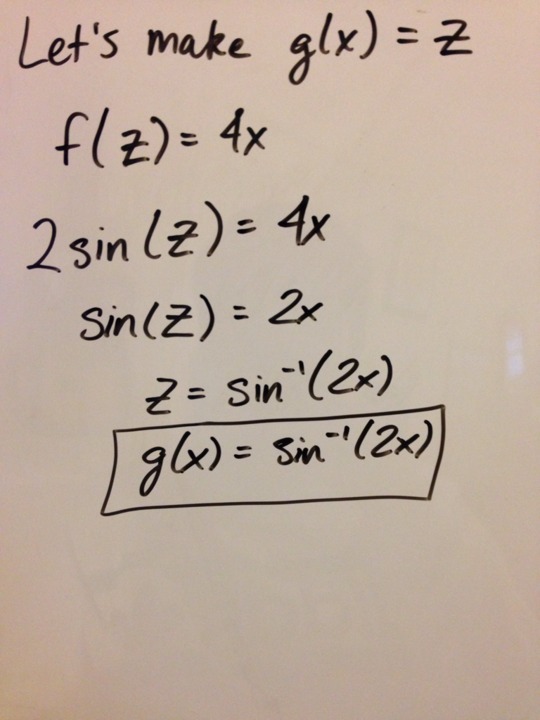 Let's make g(x) = z
f(z) = 4x
2 sin(z) = 4x
sin(z) = 2x
z = sin⁻¹(2x)
g(x) = sin⁻¹(2x)